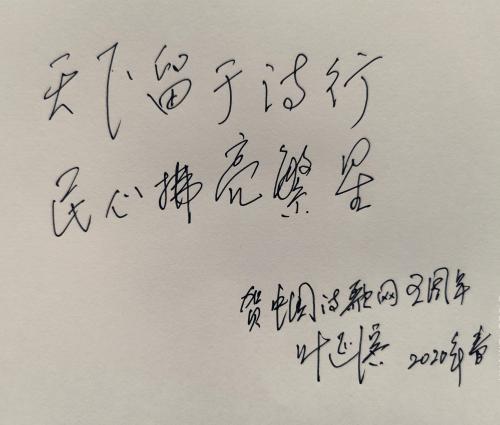 天下留于诗行
民心拂亮繁星
贺中国诗歌网五周年
叶延滨 2020年春